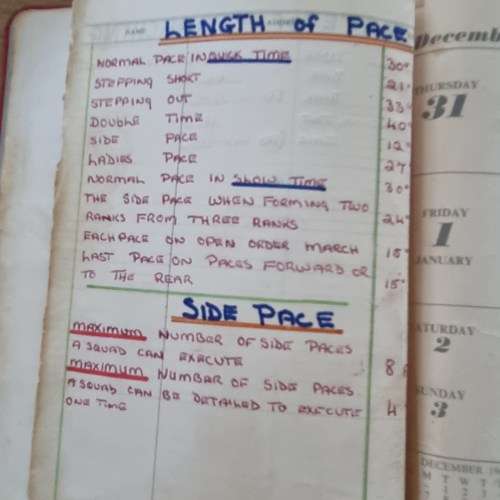 LENGTH of PACE
NORMAL PACE IN QUICK TIME 30"
STEPPING SHORT 21"
STEPPING OUT 33"
DOUBLE TIME 40"
SIDE PACE 12"
LADIES PACE 27"
NORMAL PACE IN SLOW TIME 30"
THE SIDE PACE WHEN FORMING TWO
RANKS FROM THREE RANKS 24"
EACH PACE ON OPEN ORDER MARCH 15"
LAST PACE ON PACES FORWARD OR
TO THE REAR 15"
SIDE PACE
MAXIMUM NUMBER OF SIDE PACES
A SQUAD CAN EXECUTE 8
MAXIMUM NUMBER OF SIDE PACES
A SQUAD CAN BE DETAILED TO EXECUTE 4
ONE TIME
Decemb
THURSDAY
31
FRIDAY
1
JANUARY
ATURDAY
2
SUNDAY
3
DECEMBER 19
M T W T